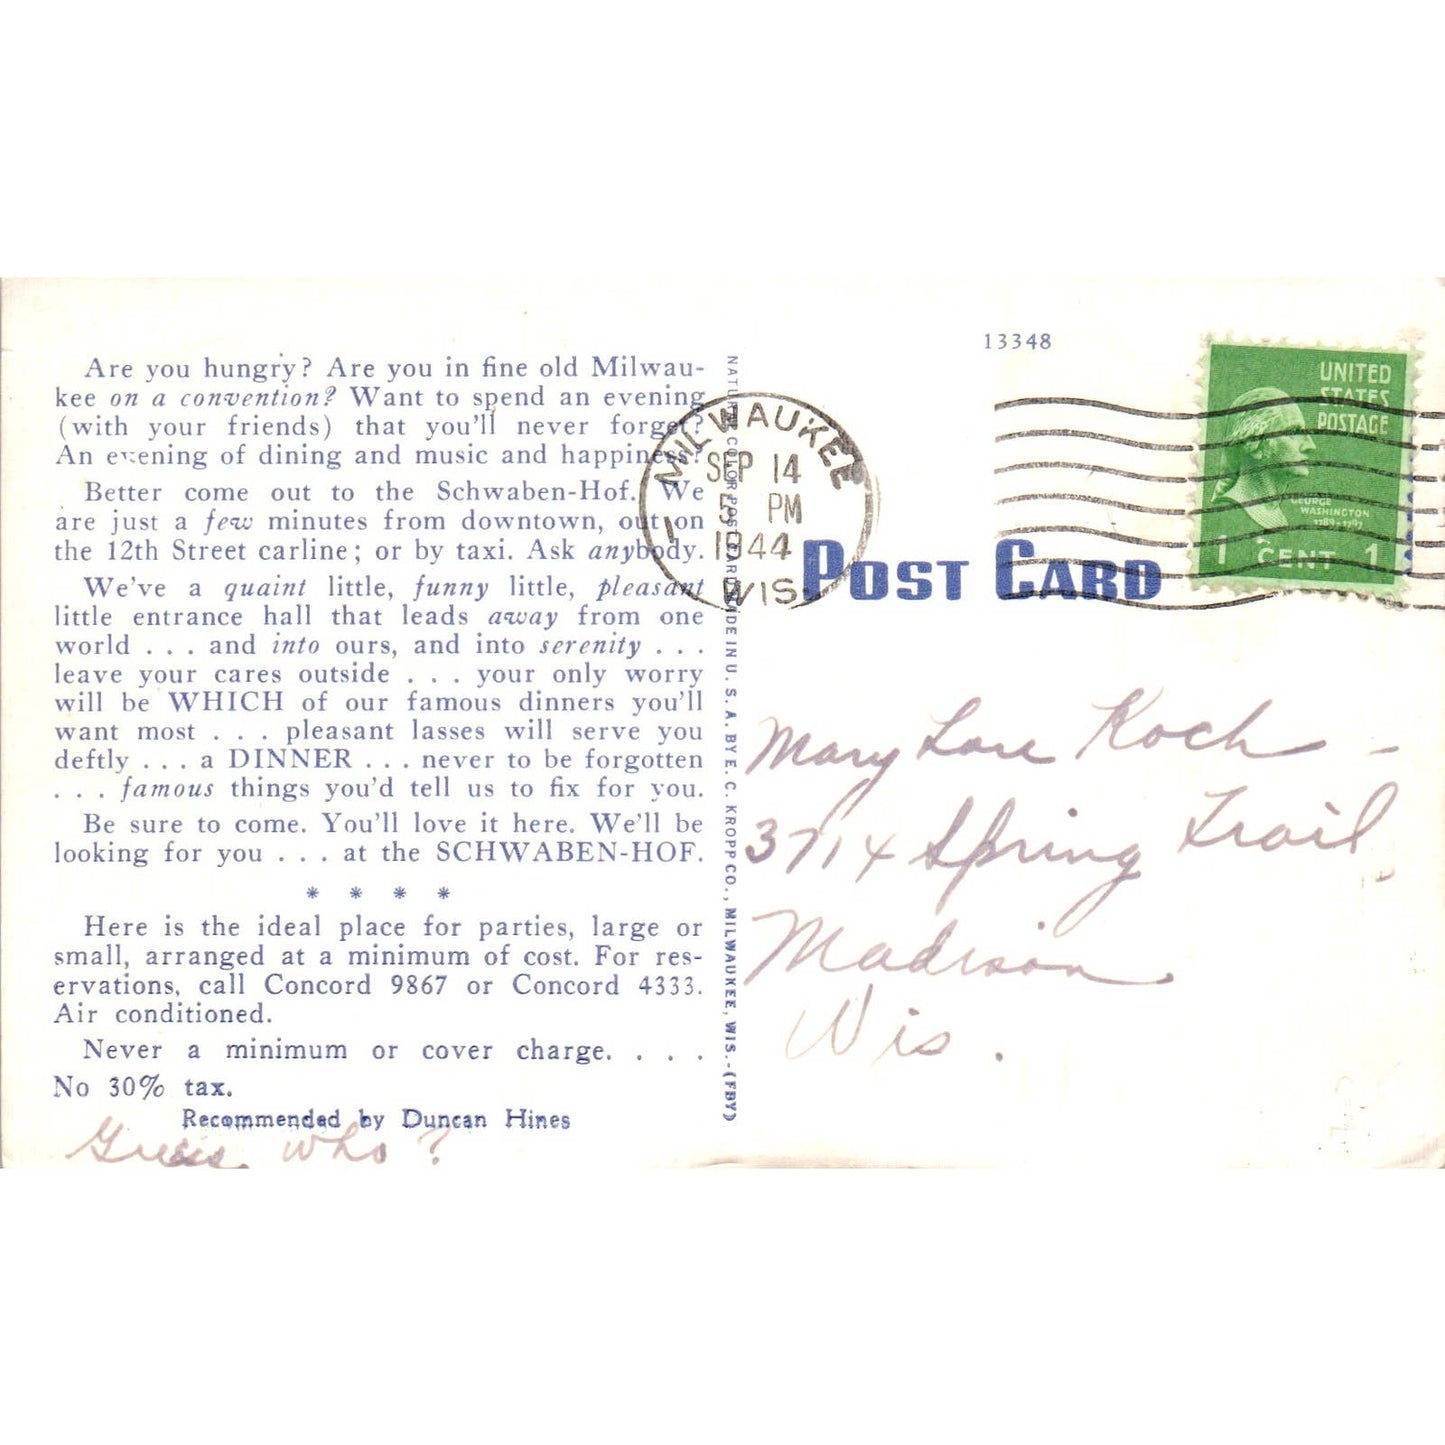 Are you hungry? Are you in fine old Milwau-
kee on a convention? Want to spend an evening
(with your friends) that you'll never forget?
An evening of dining and music and happiness?
Better come out to the Schwaben-Hof. We
are just a few minutes from downtown, out on
the 12th Street carline; or by taxi. Ask anybody.
We've a quaint little, funny little, pleasant
little entrance hall that leads away from one
world . . . and into ours, and into serenity . . .
leave your cares outside . . . your only worry
will be WHICH of our famous dinners you'll
want most . . . pleasant lasses will serve you
deftly . . . a DINNER . . . never to be forgotten
. . . famous things you'd tell us to fix for you.
Be sure to come. You'll love it here. We'll be
looking for you . . . at the SCHWABEN-HOF.
* * * *
Here is the ideal place for parties, large or
small, arranged at a minimum of cost. For res-
ervations, call Concord 9867 or Concord 4333.
Air conditioned.
Never a minimum or cover charge. . . .
No 30% tax.
Recommended by Duncan Hines
Guess who?
COLOR POST CARD MADE IN U. S. A. BY E. C. KROPP CO., MILWAUKEE, WIS.-(FBY)
MILWAUKEE
SEP 14
5 PM
1944
WIS.
13348
POST CARD
UNITED
STATES
POSTAGE
GEORGE
WASHINGTON
1789-1797
1 CENT 1
Mary Lore Koch -
3714 Spring Trail
Madison
Wis.